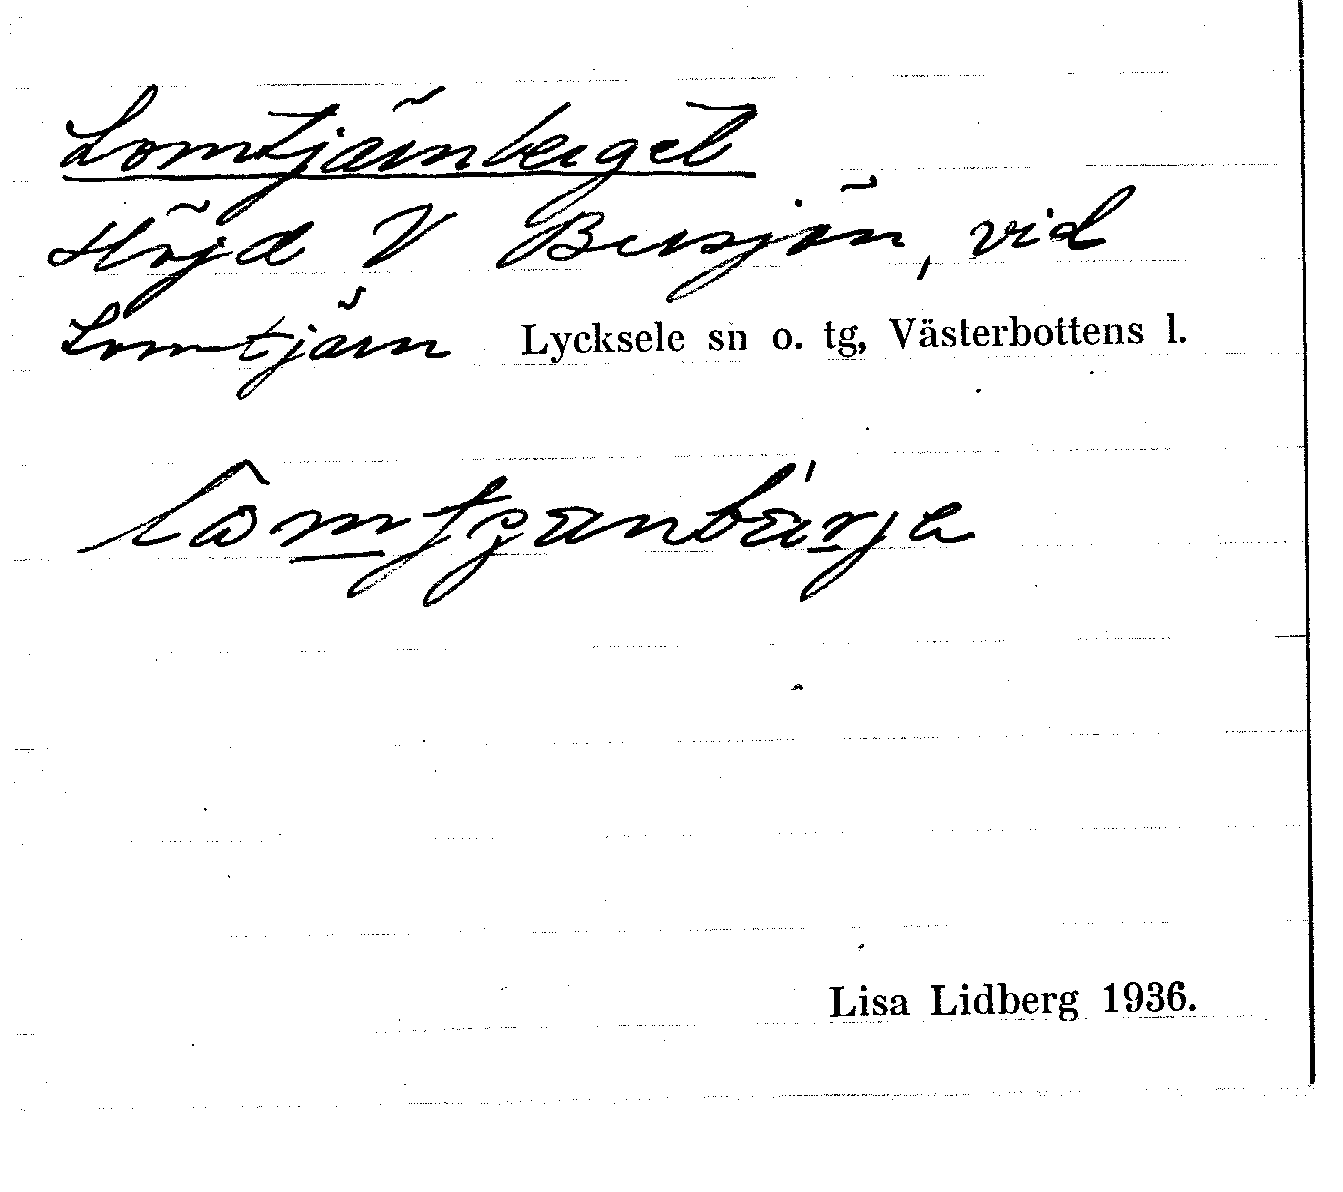 Lomtjärnberget
Höjd V Bersjön, vid
Lomtjärn Lycksele sn o. tg, Västerbottens l.
Lisa Lidberg 1936.